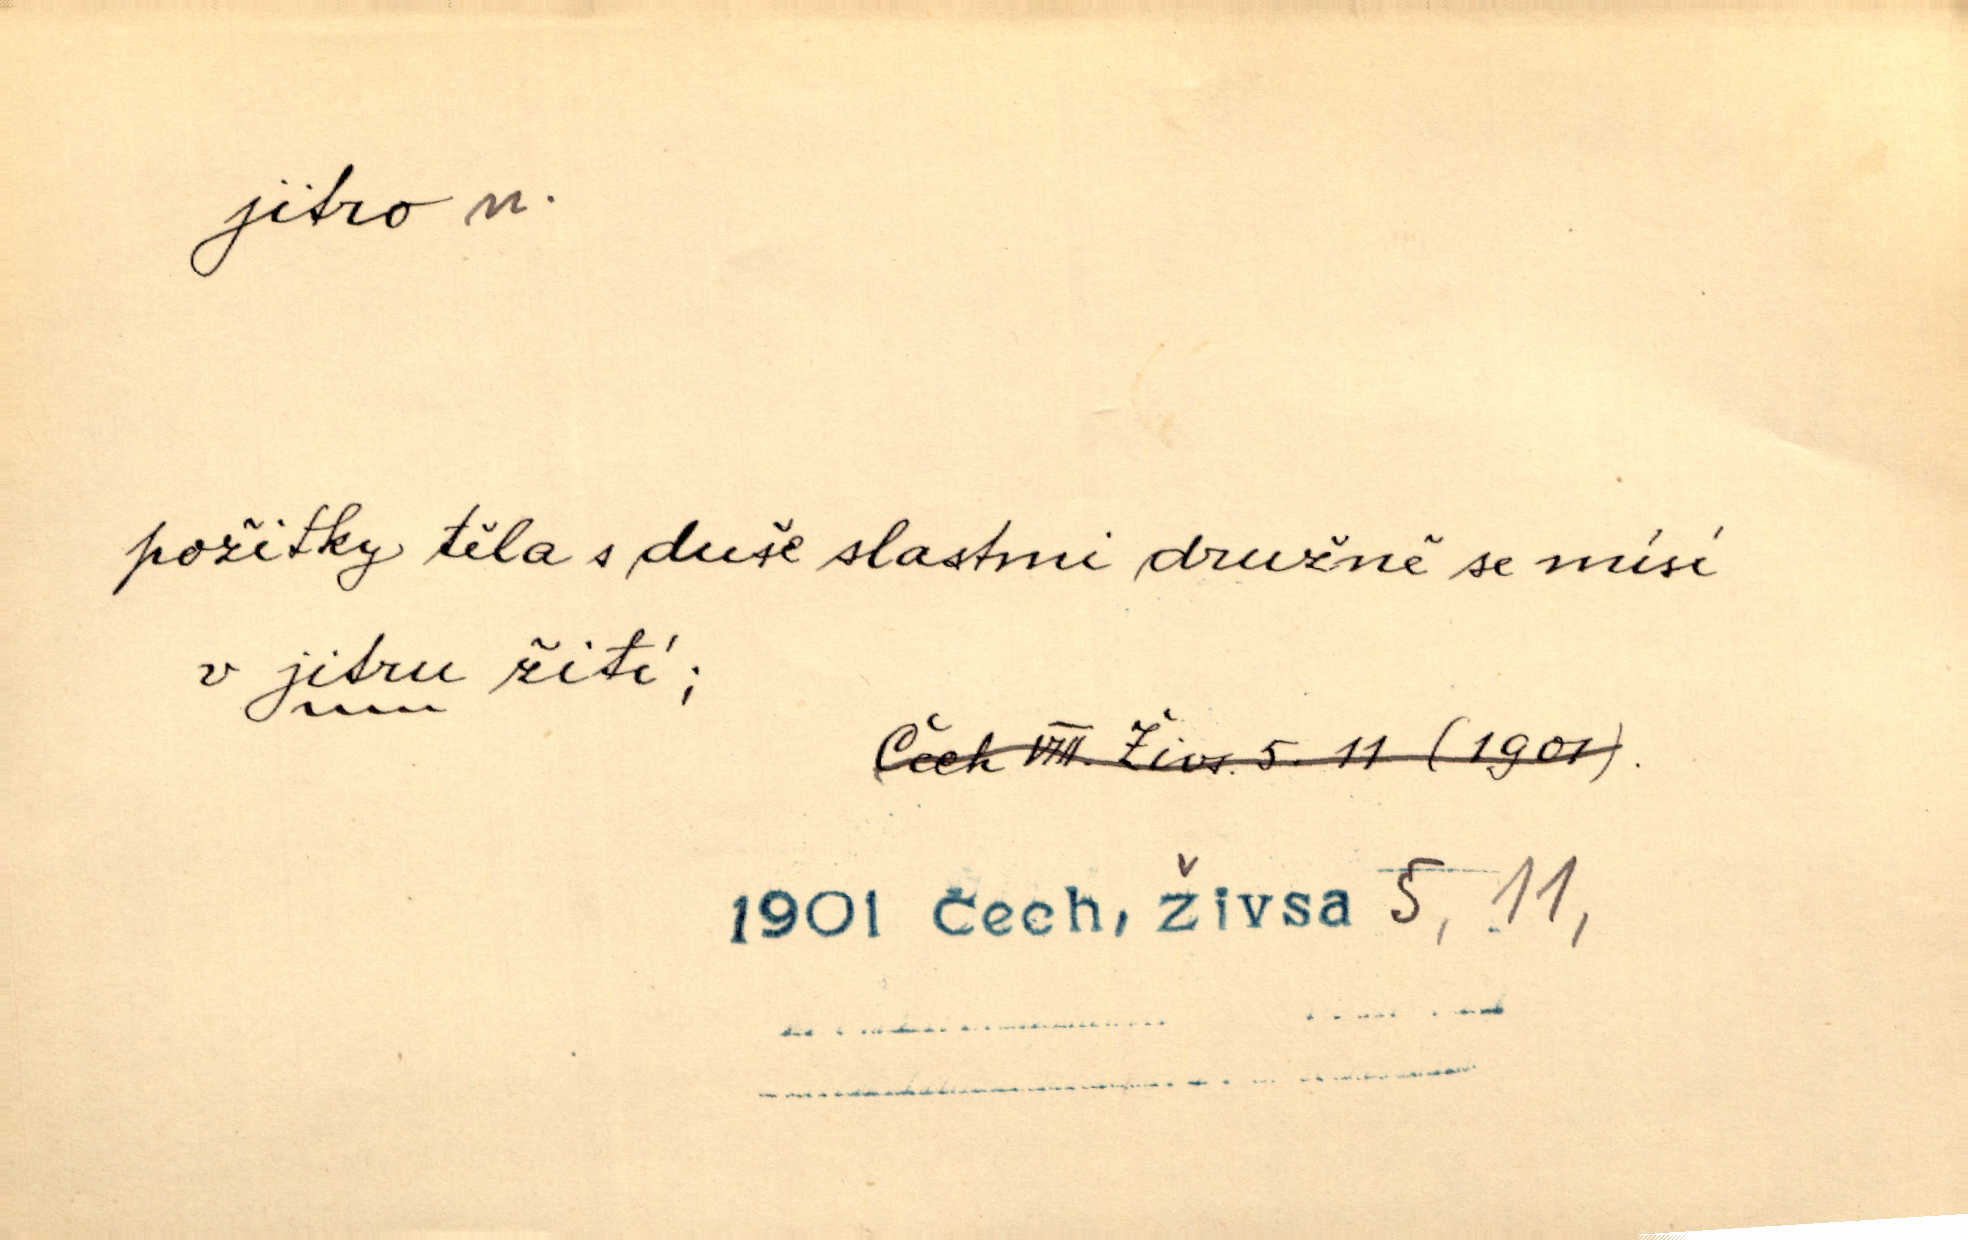 jitro n.
požitky těla s duše slastmi družně se mísí
v jitru žití;
Čech VIII. Živs. 5. 11 (1901).
1901 Čech, Živsa 5, 11,